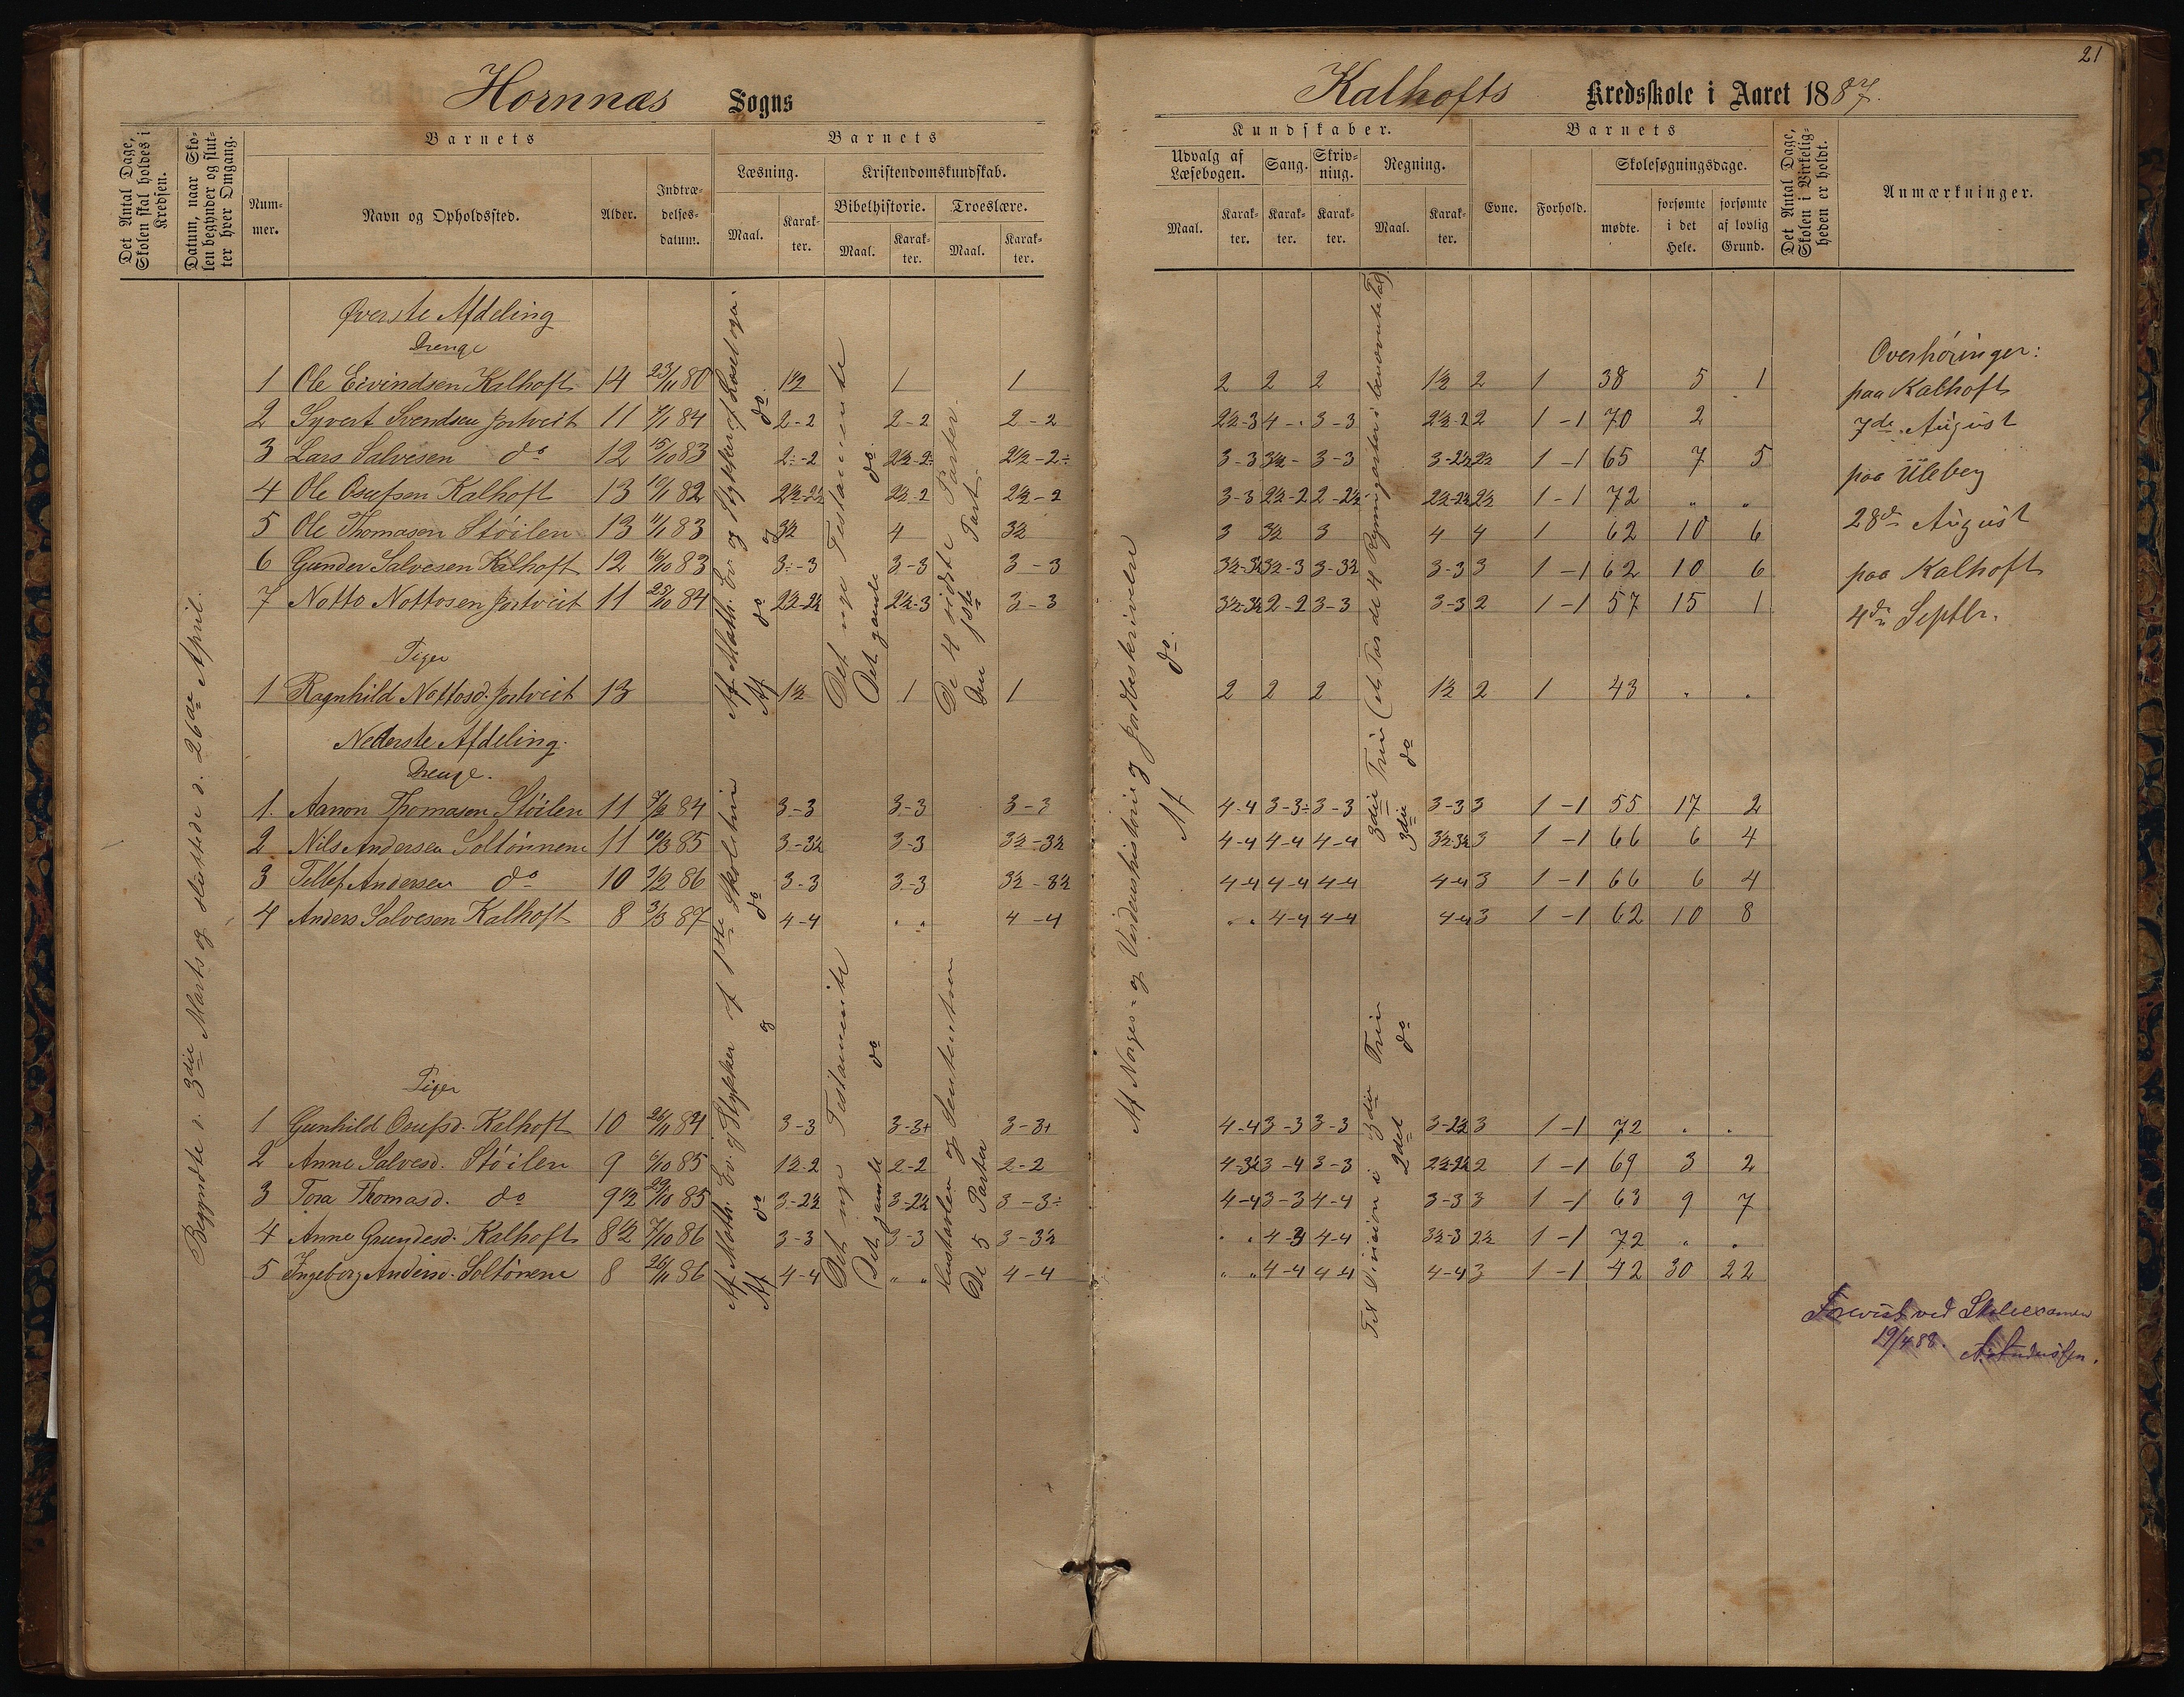 21
Hornnæs Sogns
Kalhofts Kredsskole i Aaret 1887.
Det Antal Dage, Skolen skal holdes i Kredsen.
Datum, naar Skolen begynder og slutter hver Omgang.
Barnets
Nummer.
Navn og Opholdssted.
Alder.
Indtrædelsesdatum.
Barnets
Læsning.
Maal.
Karakter.
Kristendomskundskab.
Bibelhistorie.
Maal.
Karakter.
Troeslære.
Maal.
Karakter.
Kundskaber.
Udvalg af Læsebogen.
Maal.
Karakter.
Sang.
Karakter.
Skrivning.
Karakter.
Regning.
Maal.
Karakter.
Barnets
Evne.
Forhold.
Skolesøgningsdage.
mødte.
forsømte i det Hele.
forsømte af lovlig Grund.
Det Antal Dage, Skolen i Virkeligheden er holdt.
Anmærkninger.
Begyndte d. 3die Marts og sluttede d. 26de April.
Øverste Afdeling
Drenge
1 Ole Eivindsen Kalhoft 14 23/11 80 1½ 1 1 2 2 2 1½ 2 1 38 5 1
2 Syvert Svendsen Jortveit 11 7/1 84 2-2 2-2 2-2 2½-3 4 - . 3-3 2½-2 2 1-1 70 2
3 Lars Salvesen do 12 15/10 83 2÷-2 2½-2÷ 2½-2÷ 3-3 3½- 3-3 3-2½ 2½ 1-1 65 7 5
4 Ole Osufsen Kalhoft 13 10/1 82 2½-2½ 2½-2 2½-2 3-3 2½-2 2-2½ 2½-2½ 2½ 1-1 72 " "
5 Ole Thomasen Støilen 13 11/1 83 3½ 4 3½ 3 3½ 3 4 4 1 62 10 6
6 Gunder Salvesen Kalhoft 12 16/10 83 3÷-3 3-3 3-3 3½-3½ 3½-3 3-3½ 3-3 3 1-1 62 10 6
7 Notto Nottosen Jortveit 11 23/10 84 2½-2½ 2½-3 3-3 3½-3½ 2-2 3-3 3-3 2 1-1 57 15 1
Piger
1 Ragnhild Nottosd. Jortveit 13 1½ 1 1 2 2 2 1½ 2 1 43 . .
Nederste Afdeling.
Drenge.
1. Aanon Thomasen Støilen 11 7/2 84 3-3 3-3 3-3 4-4 3-3÷ 3-3 3-3 3 1-1 55 17 2
2 Nils Andersen Soltønnene 11 10/3 85 3-3½ 3-3 3½-3½ 4-4 4-4 4-4 3½-3½ 3 1-1 66 6 4
3 Tellef Andersen do 10 1/2 86 3-3 3-3 3½-3½ 4-4 4-4 4-4 4-4 3 1-1 66 6 4
4 Anders Salvesen Kalhoft 8 3/3 87 4-4 . . 4-4 . . 4-4 4-4 4-4 3 1-1 62 10 8
Piger
1 Gunhild Osufsd. Kalhoft 10 26/11 84 3-3 3-3+ 3-3+ 4-4 3-3 3-3 3-2½ 3 1-1 72 . .
2 Anne Salvesd. Støilen 9 6/10 85 1½-2 2-2 2-2 4-3½ 3-4 3-3 2½-2½ 2 1-1 69 3 2
3 Tora Thomasd. do 9½ 29/10 85 3-2½ 3-2½ 3-3÷ 4-4 3-3 4-4 3-3 3 1-1 63 9 7
4 Anne Gundesd. Kalhoft 8½ 7/10 86 3-3 3-3 3-3½ . . 4-3 4-4 3½-3 2½ 1-1 72 " .
5 Ingeborg Andersd. Soltønene 8 26/11 86 4-4 " " 4-4 " " 4-4 4-4 4-4 3 1-1 42 30 22
Af Math. Ev. og Stykker af Læsebogen.
Af do og do.
Det nye Testamente
Det gamle do.
De 4 sidste Parter.
Den 1ste Part.
Af Math. Ev. og Stykker af 1ste Skoletrin
Af do og do
Det nye Testamente
Det gamle do
og Sententser
De 5 Parter
Af Norges- og Verdenshistorie og Jordbeskrivelse
Af do.
3die Trin (de 4 Regningsarter i benævnte Tal)
3die do
Til Division i 3die Trin
2det do
Overhøringer:
paa Kalhoft
7de August
paa Uleberg
28de August
paa Kalhoft
4de Septbr.
Forevist ved Skoleexamen
19/4 88.